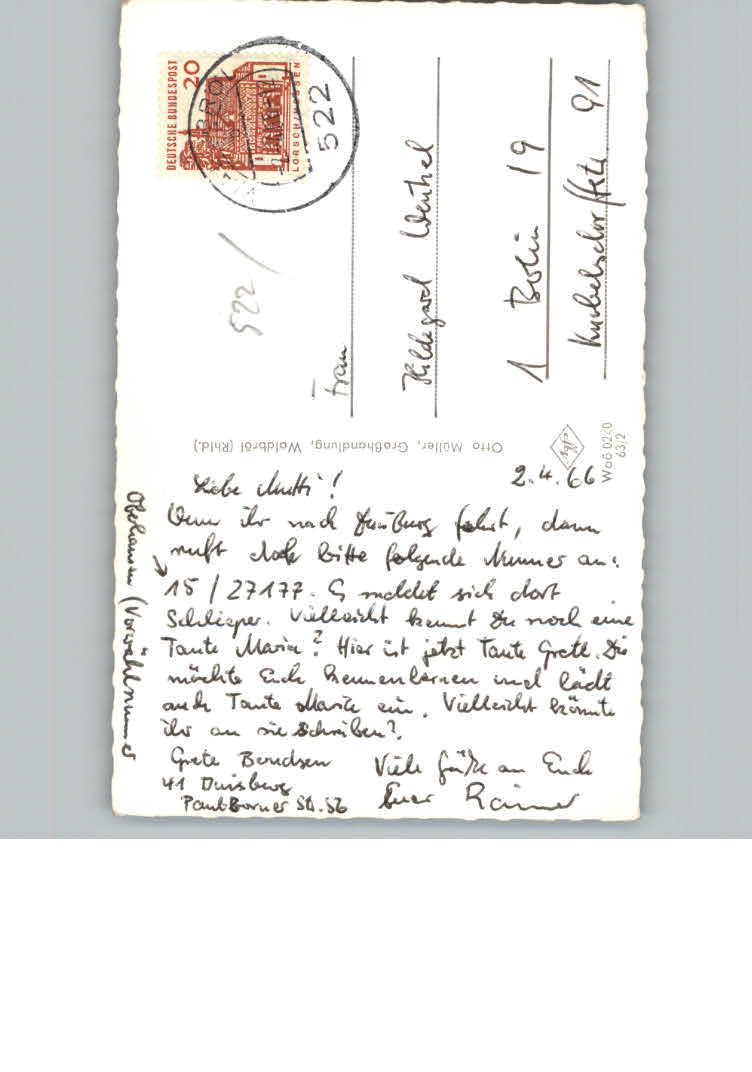 DEUTSCHE BUNDESPOST
20
LORSCH/HESSEN
522
522
Frau
Hildegard Wentzel
1 Berlin 19
Knobelsdorffstr. 91
Otto Müller, Großhandlung, Waldbröl (Rhld.)
Agfa
Waß 0240
63/2
2.4.66
Liebe Mutti!
Wenn ihr nach Duisburg fahrt, dann
ruft doch bitte folgende Nummer an:
15/27177. Es meldet sich dort
Schlieper. Vielleicht kennt Du noch eine
Tante Maria? Hier ist jetzt Tante Grete. Die
möchte Euch kennenlernen und lädt
auch Tante Marie ein. Vielleicht könnte
ihr an sie schreiben?
Grete Berndsen
41 Duisburg
Paul-Borner Str. 56
Viele Grüße an Euch
Euer Rainer
Oberhausen (Vorwählnummer